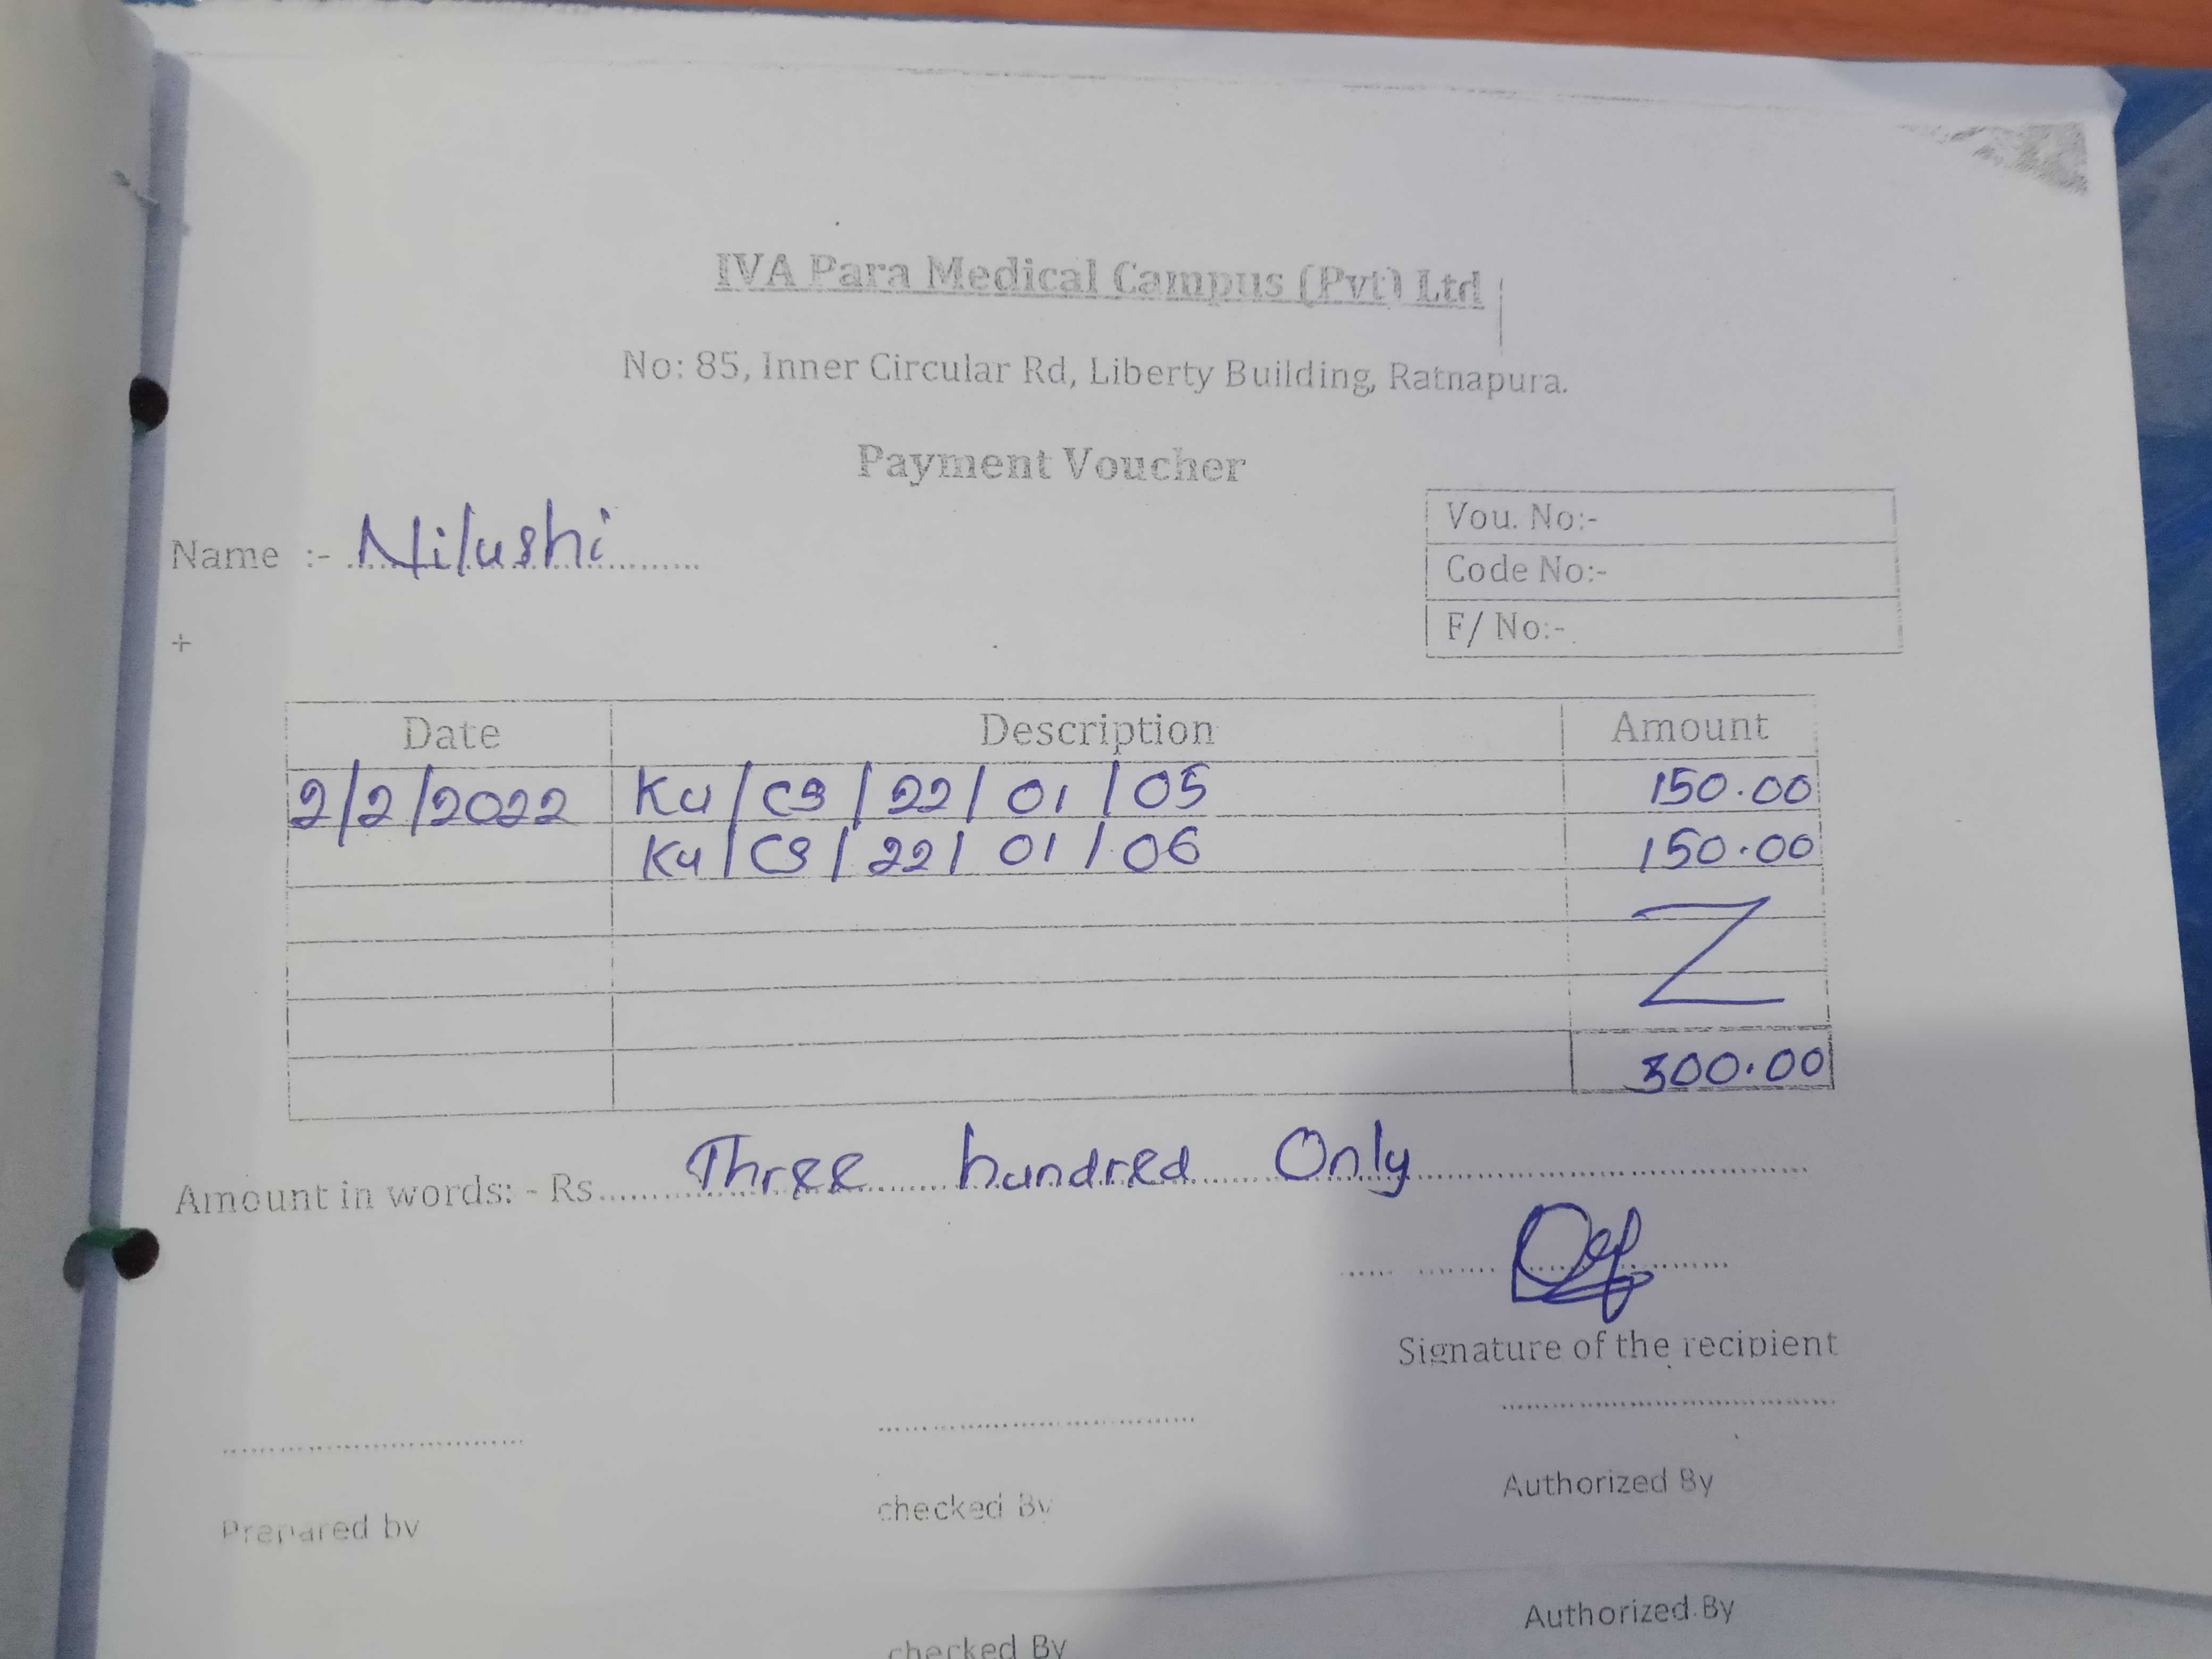 IVA Para Medical Campus (Pvt) Ltd
No: 85, Inner Circular Rd, Liberty Building, Ratnapura.
Payment Voucher
Name :- Nilushi
Vou. No:-
Code No:-
F/ No:-
+
Date Description Amount
2/2/2022 Ku/CS/22/01/05 150.00
Ku/CS/22/01/06 150.00
300.00
Amount in words: - Rs Three hundred Only
Signature of the recipient
Prepared by checked By Authorized By
checked By Authorized By